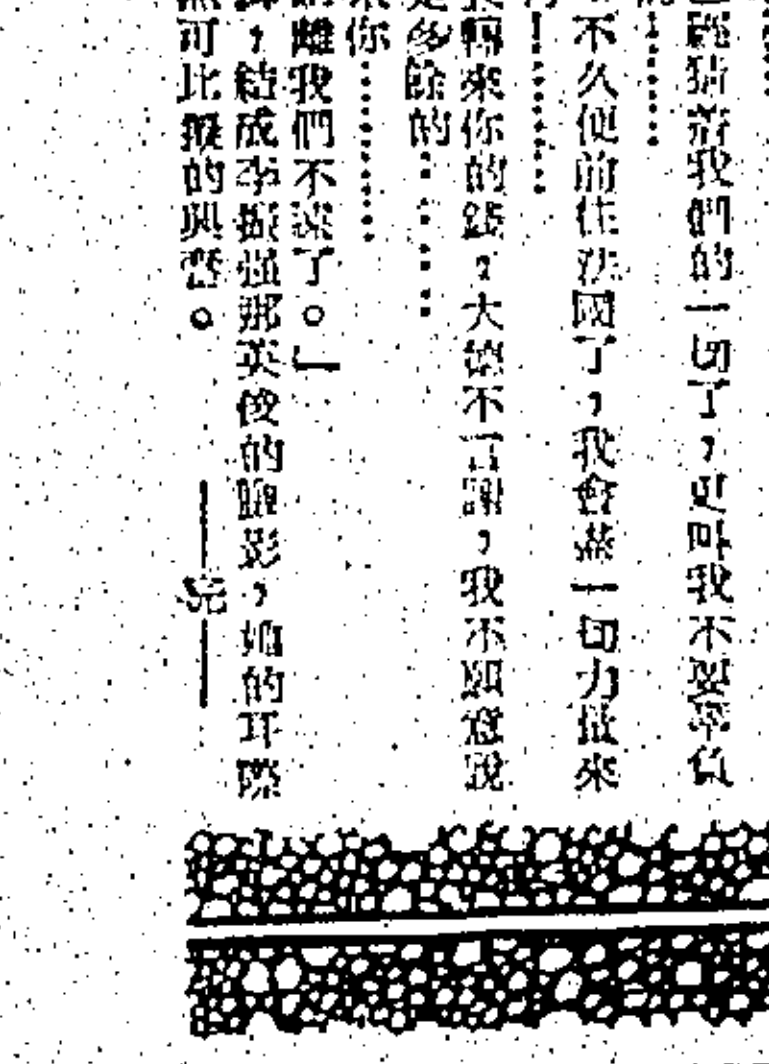 猜着我們的一切了，更叫我不要辜負
…………
不久便前往法國了，我會盡一切力量來
…………
轉來你的錢，大德不言謝，我不願意說
多餘的…………
你…………
離我們不遠了。」
，結成李振強那英俊的臉影，她的耳際
可比擬的興奮。
——完——